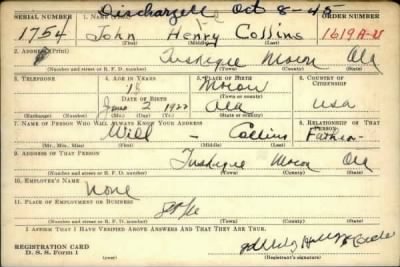 Discharged Oct 8-45
SERIAL NUMBER 1. NAME (Print) ORDER NUMBER
1754 John Henry Collins 1619A-U
(First) (Middle) (Last)
2. ADDRESS (Print)
Tuskegee Macon Ala
(Number and street or R. F. D. number) (Town) (County) (State)
3. TELEPHONE 4. AGE IN YEARS 5. PLACE OF BIRTH 6. COUNTRY OF CITIZENSHIP
18 Macon
DATE OF BIRTH (Town or county)
2 1922 Ala USA
(Exchange) (Number) (Mo.) (Day) (Yr.) (State or country)
7. NAME OF PERSON WHO WILL ALWAYS KNOW YOUR ADDRESS 8. RELATIONSHIP OF THAT PERSON
Will - Collins Father
(Mr., Mrs., Miss) (First) (Middle) (Last)
9. ADDRESS OF THAT PERSON
Tuskegee Macon Ala
(Number and street or R. F. D. number) (Town) (County) (State)
10. EMPLOYER'S NAME
None
11. PLACE OF EMPLOYMENT OR BUSINESS
(Number and street or R. F. D. number) (Town) (County) (State)
I AFFIRM THAT I HAVE VERIFIED ABOVE ANSWERS AND THAT THEY ARE TRUE.
REGISTRATION CARD
D. S. S. Form 1
(Registrant's signature)